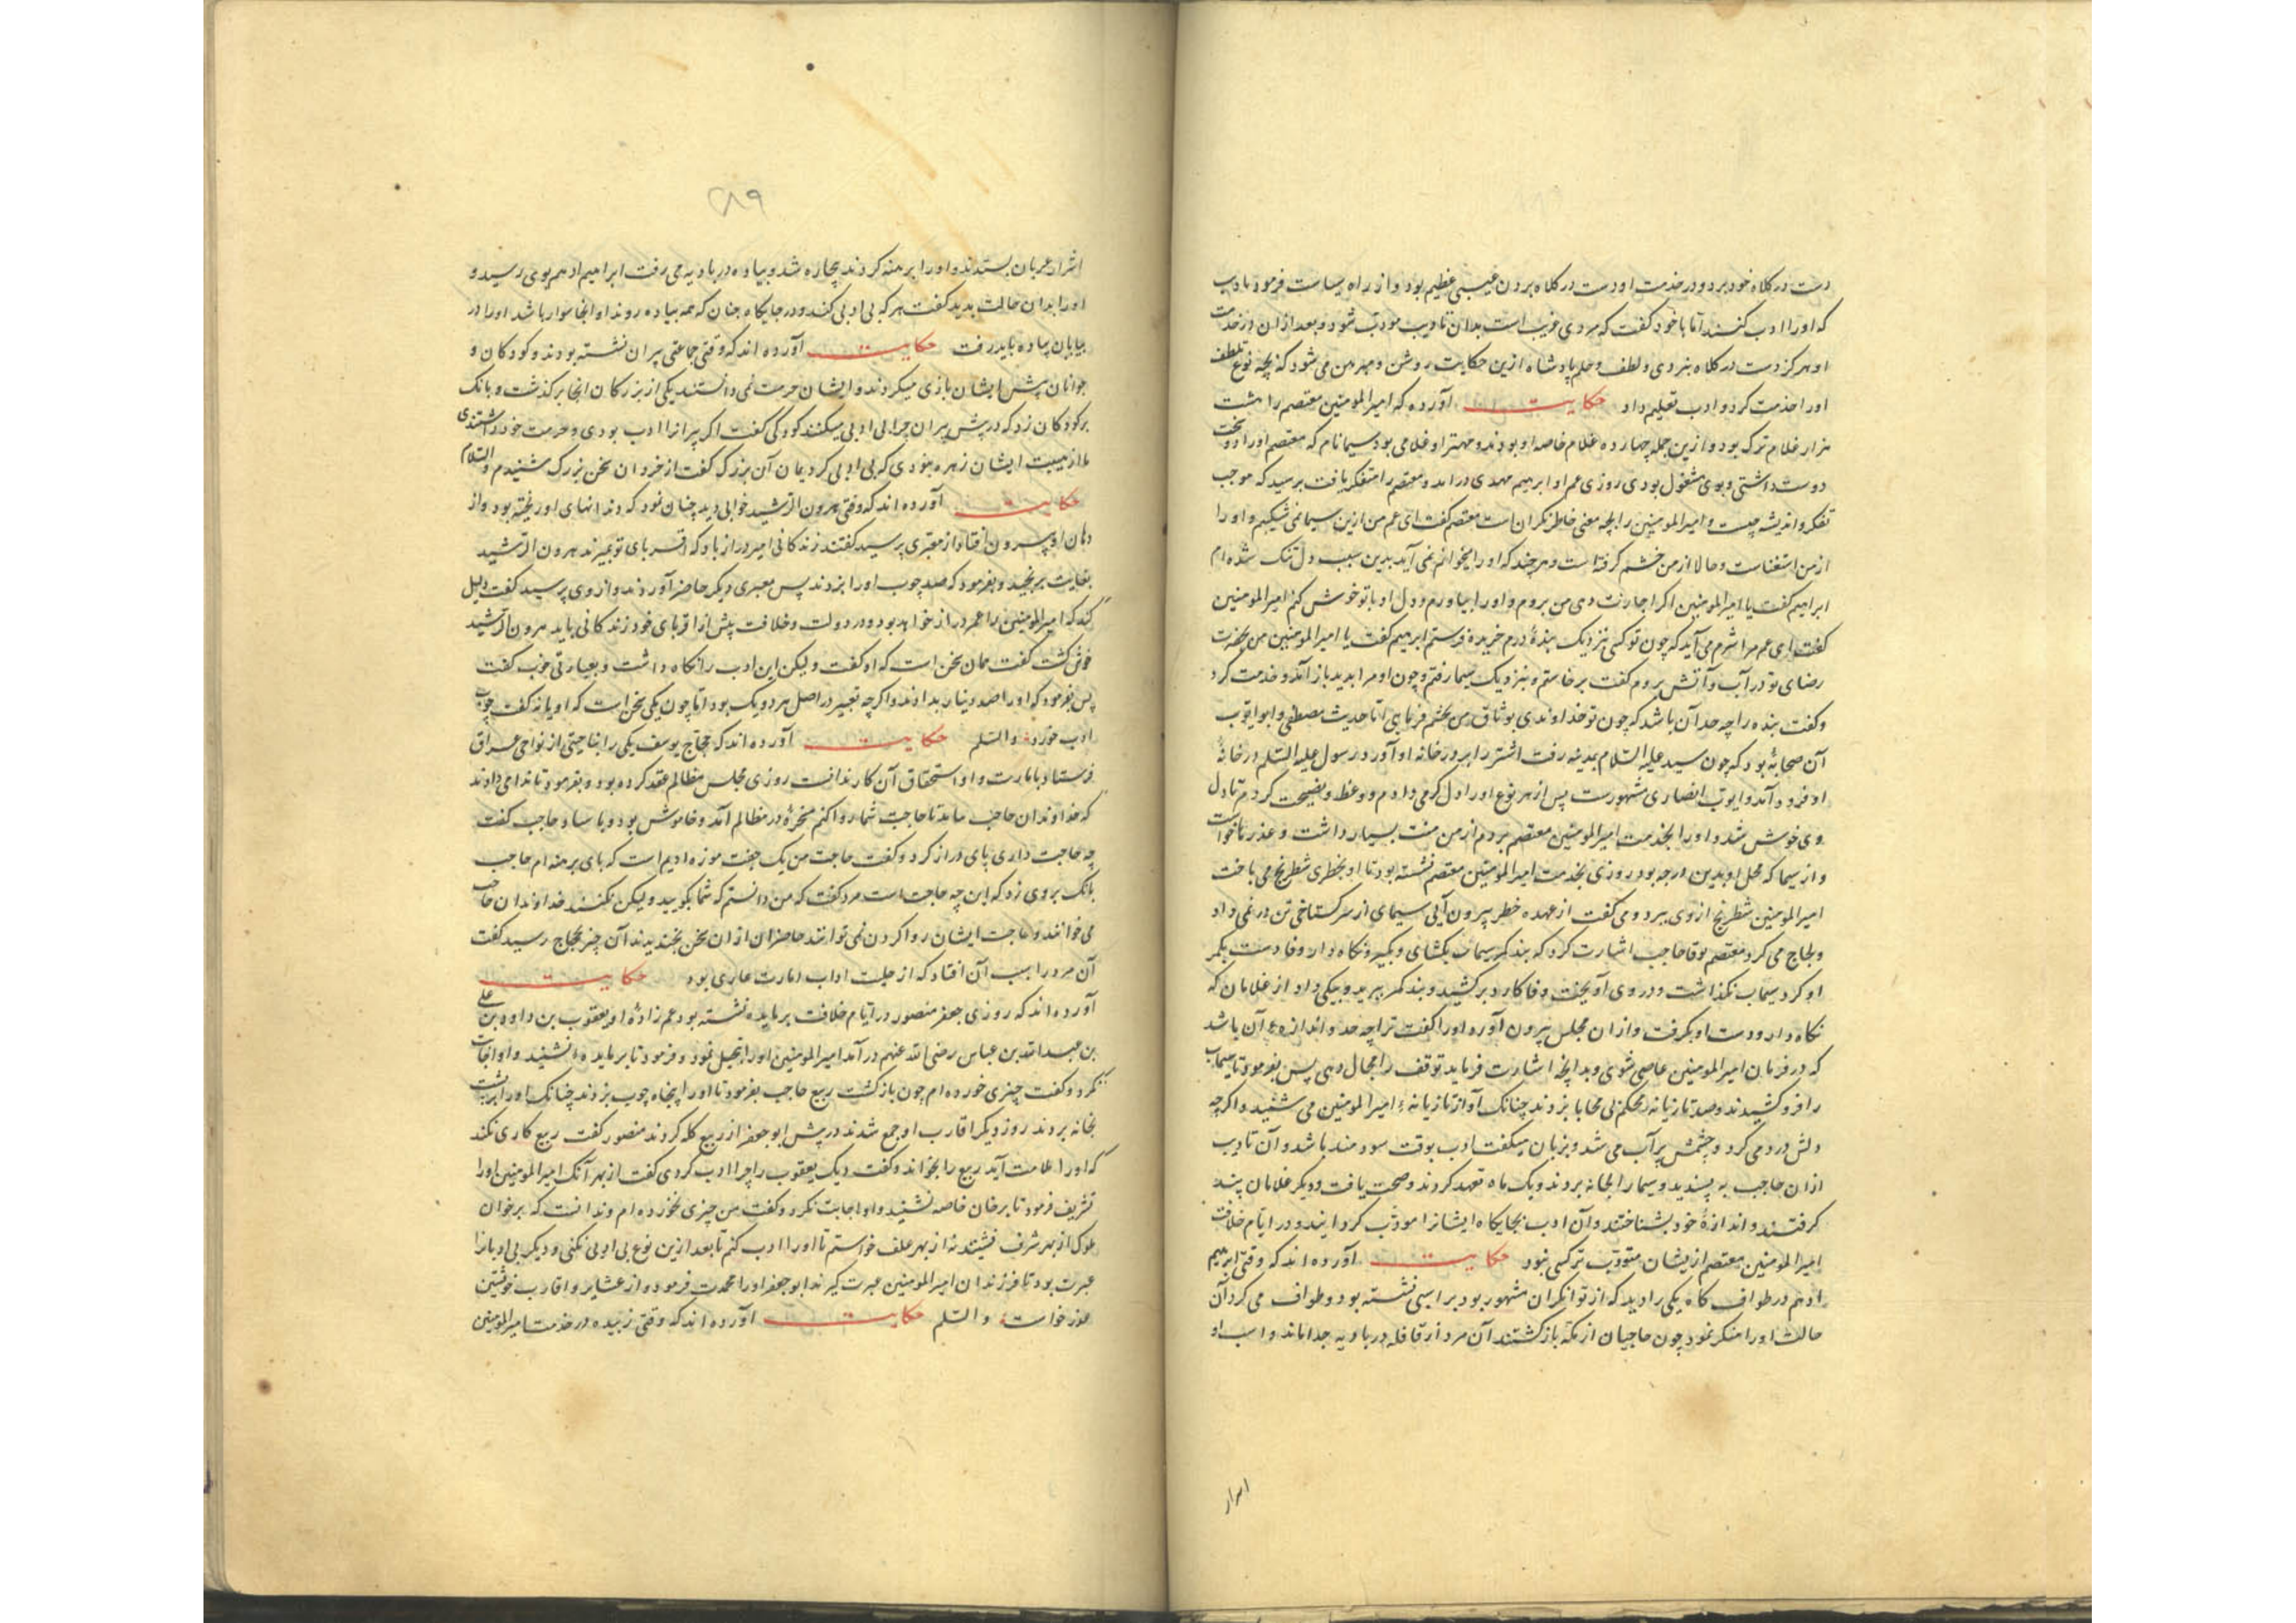 دست در کلاه خود برد و در خدمت او دست در کلاه بردن عیبی عظیم بود و از راه سیاست فرمود تا ادب
که او را ادب کنند اما با خود گفت که مردی غریب است بدان تادیب مودب شود و بعد از ان در خدمت
او هرگز دست در کلاه نبردی و لطف و حلم پادشاه ازین حکایت روشن و مبرهن می شود که بچه نوع تلطف
او را خدمت کرد و ادب تعلیم داد حکایت آورده که امیرالمومنین معتصم را هشت
هزار غلام ترک بود و ازین جمله چهارده غلام خاصه او بودند و مهتر او غلامی بود سیمانام که معتصم او را
دوست داشتی و بوی مشغول بودی روزی عم او ابراهیم مهدی درامد و معتصم را متفکر یافت پرسید که موجب
تفکر و اندیشه چیست و امیرالمومنین را بچه معنی خاطر نگران است معتصم گفت ای عم من ازین سیما نمی شکیبم و او را
از من استغناست و حالا از من خشم گرفته است و هر چند که او را میخوانم نمی آید بدین سبب دل تنک شده ام
ابراهیم گفت یا امیرالمومنین اگر اجازت دهی من بروم و او را بیاورم و دل او با تو خوش کنم امیرالمومنین
گفت ای عم مرا شرم می آید که چون تو کسی بنزدیک بنده درم خریده فرستم ابرهیم گفت یا امیرالمومنین من بجهت
رضای تو در آب و آتش بروم گفت برخاستم و بنزدیک سیما رفتم و چون او مرا بدید باز آمد و خدمت کرد
و گفت بنده را چه حد آن باشد که چون تو خداوندی بوثاق من تجشم فرمایی اما حدیث مصطفی و ابو ایوب
آن صحابه بود که چون سید علیه السلام بمدینه رفت اشتر را بر در خانه او آورد و رسول علیه السلم در خانه
او فرود آمد و ایوب انصاری مشهورست پس از هر نوع او را دل گرمی دادم و وعظ و نصیحت کردم تا دل
وی خوش شد و او را بخدمت امیرالمومنین معتصم بردم از من منت بسیار داشت و عذرها خواست
و از سیما که محل او بدین درجه بود روزی بخدمت امیرالمومنین معتصم نشسته بود تا او بخطری شطرنج می باخت
امیرالمومنین شطرنج از وی ببرد و می گفت از عهده خطر بیرون آیی سیمای از سر گستاخی تن در نمی داد
و لجاج می کرد معتصم بوفا حاجب اشارت کرد که بند کمر سیماب بگشای و بگیر و نگاه دار وفا دست بکمر
او کرد سیماب نگذاشت و در وی آویخت وفا کارد برکشید و بند کمر ببرید و بیکی داد از غلامان که
نگاه دار و دست او بگرفت و از ان مجلس بیرون آورد او را گفت ترا چه حد و اندازه آن باشد
که در فرمان امیرالمومنین عاصی شوی و بدانچه اشارت فرماید توقف را مجال دهی پس بفرمود تا سیماب
را فرو کشیدند و صد تازیانه محکم بی محابا بزدند چنانک آواز تازیانه امیرالمومنین می شنید و اگر چه
دلش درد می کرد و چشمش پر آب می شد و بزبان میگفت ادب بوقت سودمند باشد و آن تادیب
ازان حاجب به پسندید و سیما را بخانه بردند و یک ماه تعهد کردند و صحت یافت و دیگر غلامان پند
گرفتند و اندازه خود بشناختند و آن ادب بجایگاه ایشانرا مودب گردانید و در ایام خلافت
امیرالمومنین معتصم ازیشان مودب تر کسی نبود حکایت آورده اند که وقتی ابرهیم
ادهم در طواف گاه یکی را دید که از توانگران مشهور بود بر اسبی نشسته بود و طواف می کرد آن
حالت او را منکر نمود چون حاجیان از مکه بازگشتند آن مرد از قافله در بادیه جدا ماند و اسب او
اسرار
۲۸۹
اشرار عربان بستدند و او را برهنه کردند بیچاره شد و پیاده در بادیه می رفت ابراهیم ادهم بوی رسید و
او را بدان حالت بدید گفت هر که بی ادبی کند و در جایگاه چنان که همه پیاده روند او انجا سوار باشد او را در
بیابان پیاده باید رفت حکایت آورده اند که وقتی جماعتی پیران نشسته بودند و کودکان و
جوانان پیش ایشان بازی میکردند و ایشان حرمت نمی دانستند یکی از بزرگان انجا برگذشت و بانک
بر کودکان زد که در پیش پیران چرا بی ادبی میکنید کودکی گفت اگر پیرانرا ادب بودی و حرمت خود داشتندی
ما از هیبت ایشان زهره نبودی که بی ادبی کردیمان آن بزرک گفت از خردان سخن بزرک شنیدم والسلام
حکایت آورده اند که وقتی هرون الرشید خوابی دید چنان نمود که دندانهای او ریخته بود و از
دهان او بیرون افتاد از معبری پرسید گفتند زندگانی امیر دراز باد که اقربای تو بمیرند هرون الرشید
بغایت برنجید و بفرمود که صد چوب او را بزدند پس معبری دیگر حاضر آوردند و از وی پرسید گفت دلیل
کند که امیرالمومنین را عمر دراز خواهد بود و در دولت و خلافت پیش از اقربای خود زندگانی یابد هرون الرشید
خوش گشت گفت همان سخن است که او گفت و لیکن این ادب را نگاه داشت و بعبارتی خوب گفت
پس بفرمود که او را صد دینار بدادند و اگر چه تعبیر در اصل هر دو یک بود اما چون یکی سخن است که او یاند گفت چوب
ادب خورد والسلم حکایت آورده اند که حجاج یوسف یکی را بناحیتی از نواحی عراق
فرستاد بامارت و او استحقاق آن کار نداشت روزی مجلس مظالم عقد کرده بود و بفرمود تا ندا می دادند
که خداوندان حاجت بیایند تا حاجت شما روا کنم مسخره در مظالم آمد و خاموش بود و بایستاد حاجب گفت
چه حاجت داری پای دراز کرد و گفت حاجت من یک جفت موزه ادیم است که پای برهنه ام حاجب
بانک بر وی زد که این چه حاجت است مرد گفت که من دانستم که شما بگویید و لیکن نکنید خداوندان حاجت
می خوانند و حاجت ایشان روا کردن نمی توانند حاضران ازان سخن بخندیدند آن خبر بحجاج رسید گفت
آن مرد را سبب آن افتاد که از حلیت اداب امارت عاری بود حکایت
آورده اند که روزی جعفر منصور در ایام خلافت بر مایده نشسته بود عم زاده او یعقوب بن داود بن علی
بن عبدالله بن عباس رضی الله عنهم در آمد امیرالمومنین او را تبجیل نمود و فرمود تا بر مایده نشیند و او اجابت
نکرد و گفت چیزی خورده ام چون بازگشت ربیع حاجب بفرمود تا او را پنجاه چوب بزدند چنانک او را بر پشت
بخانه بردند روز دیگر اقارب او جمع شدند در پیش ابو جعفر از ربیع گله کردند منصور گفت ربیع کاری نکند
که او را ملامت آید ربیع را بخواند و گفت دیک یعقوب را چرا ادب کردی گفت از بهر آنک امیرالمومنین او را
تشریف فرمود تا بر خان خاصه نشیند و او اجابت نکرد و گفت من چیزی خورده ام و ندانست که بر خوان
ملوک از بهر شرف نشینند نه از بهر علف خواستم تا او را ادب کنم تا بعد ازین نوع بی ادبی نکنی و دیگر بی ادبانرا
عبرت بود تا فرزندان امیرالمومنین عبرت گیرند ابو جعفر او را محمدت فرمود و از عشایر و اقارب خویشتن
عذر خواست والسلم حکایت آورده اند که وقتی زبیده در خدمت امیرالمومنین